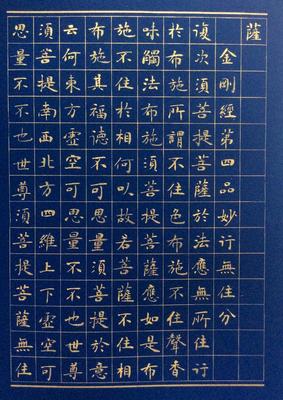 薩
金剛經第四品妙行無住分
復次須菩提菩薩於法應無所住行
於布施所謂不住色布施不住聲香
味觸法布施須菩提菩薩應如是布
施不住於相何以故若菩薩不住相
布施其福德不可思量須菩提於意
云何東方虛空可思量不不也世尊
須菩提南西北方四維上下虛空可
思量不不也世尊須菩提菩薩無住